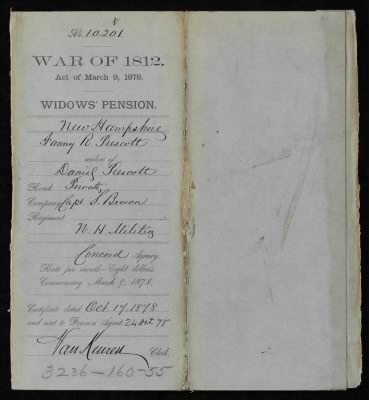 No. 10.201
WAR OF 1812.
Act of March 9, 1878.
WIDOWS' PENSION.
New Hampshire
Fanny R. Prescott
widow of
Daniel Prescott
Rank Private
Company Capt. S. Brown
Regiment
N. H. Militia
Concord Agency.
Rate per month Eight dollars.
Commencing March 9, 1878.
Certificate dated Oct. 17. 1878
and sent to Pension Agent. 24 Oct 78
Van Keuren Clerk.
3236-160-55